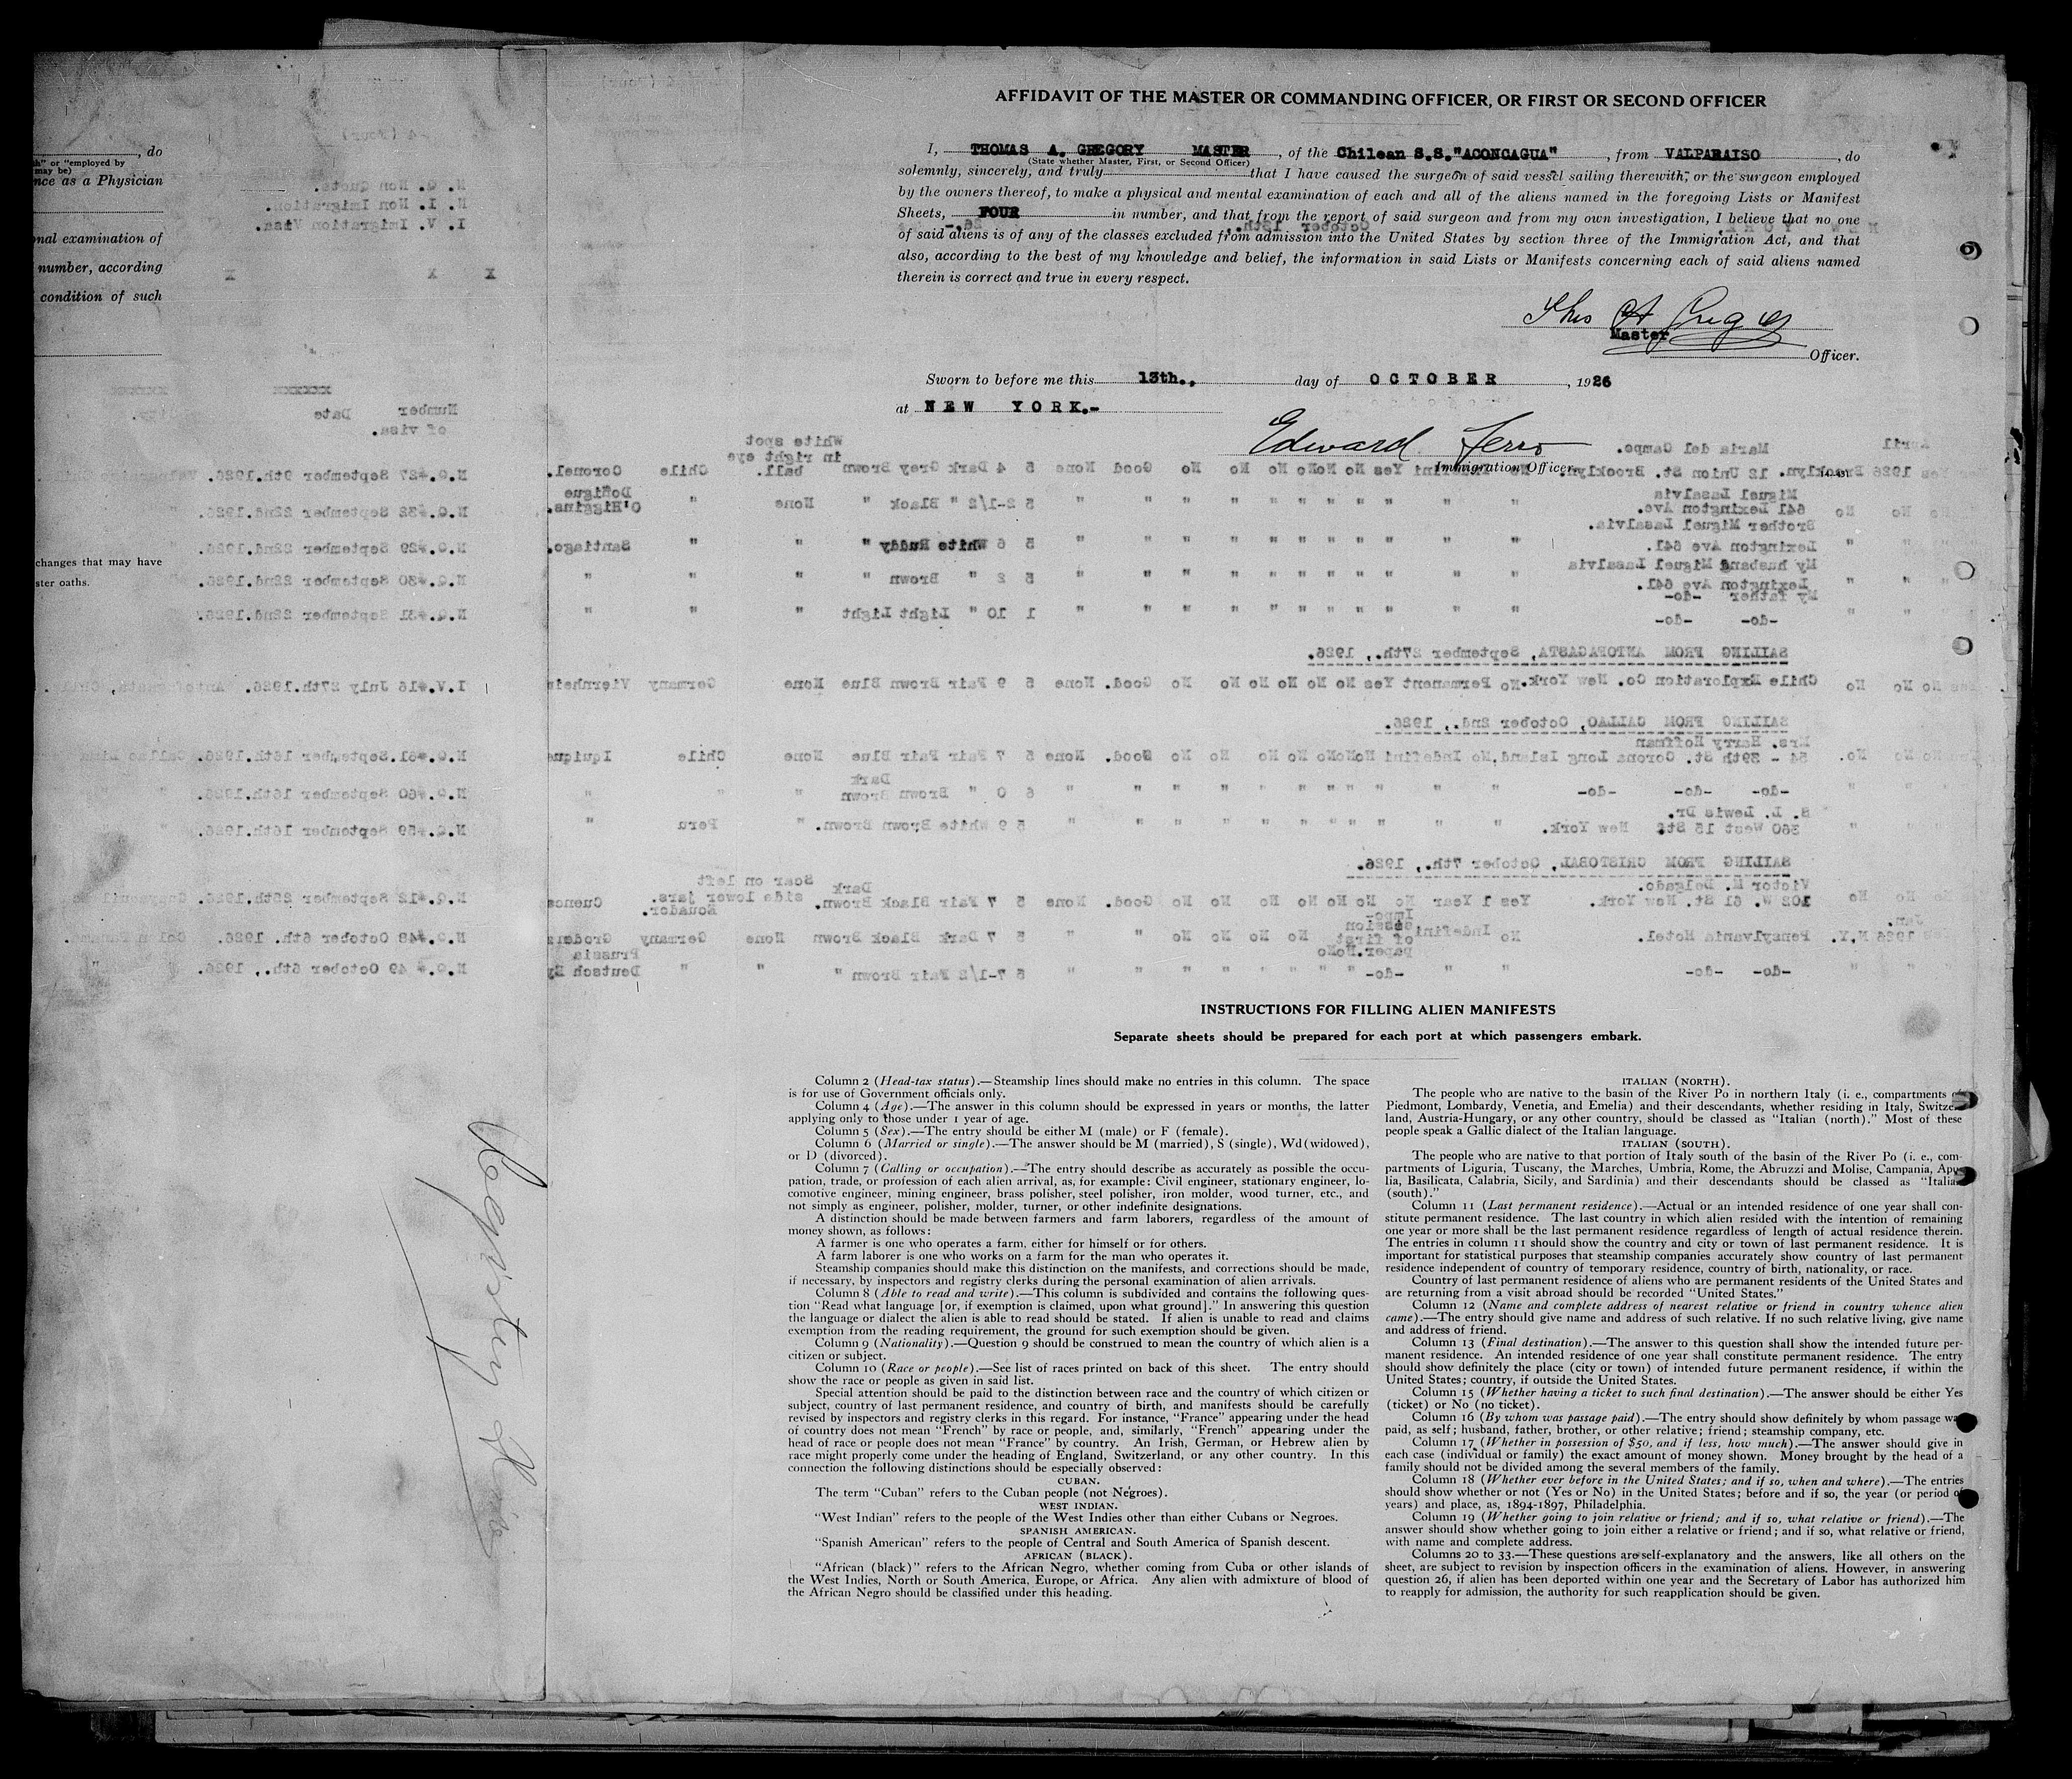 AFFIDAVIT OF THE MASTER OR COMMANDING OFFICER, OR FIRST OR SECOND OFFICER
I, THOMAS A. GREGORY MASTER, of the Chilean S.S."ACONCAGUA", from VALPARAISO, do
(State whether Master, First, or Second Officer)
solemnly, sincerely, and truly that I have caused the surgeon of said vessel sailing therewith, or the surgeon employed
by the owners thereof, to make a physical and mental examination of each and all of the aliens named in the foregoing Lists or Manifest
Sheets, FOUR in number, and that from the report of said surgeon and from my own investigation, I believe that no one
of said aliens is of any of the classes excluded from admission into the United States by section three of the Immigration Act, and that
also, according to the best of my knowledge and belief, the information in said Lists or Manifests concerning each of said aliens named
therein is correct and true in every respect.
Master
Officer.
Sworn to before me this 13th., day of OCTOBER, 1926
at NEW YORK.-
Edward Ferro
Immigration Officer.
, do
" or "employed by
may be)
nce as a Physician
onal examination of
number, according
condition of such
changes that may have
ster oaths.
N. Q. Non Quota.
N. I. Non Imigration.
I. V. Imigration Visa.
X X X
Number of visa.
Date
Maria del Campo.
12 Union St. Brooklyn.
White spot in right eye ball.
Chile Coronel.
N.Q.#27 September 9th.1926.
Miguel Lasalvia
641 Lexington Ave.
5 2-1/2 " Black " None " Doñigue O'Higgins.
N.Q.#32 September 22nd.1926.
Brother Miguel Lasalvia.
Lexington Ave 641.
5 6 White Ruddy " " " Santiago.
N.Q.#29 September 22nd.1926.
My husband Miguel Lasalvia
Lexington Ave 641.
5 2 " Brown " " " "
N.Q.#30 September 22nd.1926.
My father -do-
-do- -do-
1 10 " Light Light " " "
N.Q.#31 September 22nd.1926.
SAILING FROM ANTOFAGASTA, September 27th., 1926.
Chile Exploration Co. New York. No Permanent Yes No No No No No No No Good. None 5 9 Fair Brown Blue None Germany Viernheim
I.V.#16 July 27th.1926.
SAILING FROM CALLAO, October 2nd., 1926.
Mrs. Harry Hoffman
54 - 39th St. Corona Long Island.
Good. None 5 7 Fair Fair Blue None Chile Iquique
N.Q.#61.September 16th.1926.
-do- -do- -do-
6 0 " Brown Dark Brown " " "
N.Q.#60 September 16th.1926.
S. L. Lewis Dr.
360 West 15 St. New York.
5 9 White Brown Brown. " Peru "
N.Q.#59 September 16th.1926.
SAILING FROM CRISTOBAL, October 7th., 1926.
Victor M. Delgado.
102 W. 61 St. New York. Yes 1 Year
Good. None 5 7 Fair Black Dark Brown. Scar on left side lower jars. Ecuador. Cuenca
N.Q.#12 September 25th.1926.
Jan. 1926 N.Y. Pennsylvania Hotel. No Indefini
5 7 Dark Black Brown None Germany
N.Q.#48 October 6th. 1926.
-do- -do-
-do-
5 7-1/2 Fair Brown " " "
N.Q.# 49 October 6th., 1926.
INSTRUCTIONS FOR FILLING ALIEN MANIFESTS
Separate sheets should be prepared for each port at which passengers embark.
Column 2 (Head-tax status).—Steamship lines should make no entries in this column. The space
is for use of Government officials only.
Column 4 (Age).—The answer in this column should be expressed in years or months, the latter
applying only to those under 1 year of age.
Column 5 (Sex).—The entry should be either M (male) or F (female).
Column 6 (Married or single).—The answer should be M (married), S (single), Wd (widowed),
or D (divorced).
Column 7 (Calling or occupation).—The entry should describe as accurately as possible the occu-
pation, trade, or profession of each alien arrival, as, for example: Civil engineer, stationary engineer, lo-
comotive engineer, mining engineer, brass polisher, steel polisher, iron molder, wood turner, etc., and
not simply as engineer, polisher, molder, turner, or other indefinite designations.
A distinction should be made between farmers and farm laborers, regardless of the amount of
money shown, as follows:
A farmer is one who operates a farm, either for himself or for others.
A farm laborer is one who works on a farm for the man who operates it.
Steamship companies should make this distinction on the manifests, and corrections should be made,
if necessary, by inspectors and registry clerks during the personal examination of alien arrivals.
Column 8 (Able to read and write).—This column is subdivided and contains the following ques-
tion "Read what language [or, if exemption is claimed, upon what ground]." In answering this question
the language or dialect the alien is able to read should be stated. If alien is unable to read and claims
exemption from the reading requirement, the ground for such exemption should be given.
Column 9 (Nationality).—Question 9 should be construed to mean the country of which alien is a
citizen or subject.
Column 10 (Race or people).—See list of races printed on back of this sheet. The entry should
show the race or people as given in said list.
Special attention should be paid to the distinction between race and the country of which citizen or
subject, country of last permanent residence, and country of birth, and manifests should be carefully
revised by inspectors and registry clerks in this regard. For instance, "France" appearing under the head
of country does not mean "French" by race or people, and, similarly, "French" appearing under the
head of race or people does not mean "France" by country. An Irish, German, or Hebrew alien by
race might properly come under the heading of England, Switzerland, or any other country. In this
connection the following distinctions should be especially observed:
CUBAN.
The term "Cuban" refers to the Cuban people (not Negroes).
WEST INDIAN.
"West Indian" refers to the people of the West Indies other than either Cubans or Negroes.
SPANISH AMERICAN.
"Spanish American" refers to the people of Central and South America of Spanish descent.
AFRICAN (BLACK).
"African (black)" refers to the African Negro, whether coming from Cuba or other islands of
the West Indies, North or South America, Europe, or Africa. Any alien with admixture of blood of
the African Negro should be classified under this heading.
ITALIAN (NORTH).
The people who are native to the basin of the River Po in northern Italy (i. e., compartments of
Piedmont, Lombardy, Venetia, and Emelia) and their descendants, whether residing in Italy, Switzer-
land, Austria-Hungary, or any other country, should be classed as "Italian (north)." Most of these
people speak a Gallic dialect of the Italian language.
ITALIAN (SOUTH).
The people who are native to that portion of Italy south of the basin of the River Po (i. e., com-
partments of Liguria, Tuscany, the Marches, Umbria, Rome, the Abruzzi and Molise, Campania, Apu-
lia, Basilicata, Calabria, Sicily, and Sardinia) and their descendants should be classed as "Italian
(south)."
Column 11 (Last permanent residence).—Actual or an intended residence of one year shall con-
stitute permanent residence. The last country in which alien resided with the intention of remaining
one year or more shall be the last permanent residence regardless of length of actual residence therein.
The entries in column 11 should show the country and city or town of last permanent residence. It is
important for statistical purposes that steamship companies accurately show country of last permanent
residence independent of country of temporary residence, country of birth, nationality, or race.
Country of last permanent residence of aliens who are permanent residents of the United States and
are returning from a visit abroad should be recorded "United States."
Column 12 (Name and complete address of nearest relative or friend in country whence alien
came).—The entry should give name and address of such relative. If no such relative living, give name
and address of friend.
Column 13 (Final destination).—The answer to this question shall show the intended future per-
manent residence. An intended residence of one year shall constitute permanent residence. The entry
should show definitely the place (city or town) of intended future permanent residence, if within the
United States; country, if outside the United States.
Column 15 (Whether having a ticket to such final destination).—The answer should be either Yes
(ticket) or No (no ticket).
Column 16 (By whom was passage paid).—The entry should show definitely by whom passage was
paid, as self; husband, father, brother, or other relative; friend; steamship company, etc.
Column 17 (Whether in possession of $50, and if less, how much).—The answer should give in
each case (individual or family) the exact amount of money shown. Money brought by the head of a
family should not be divided among the several members of the family.
Column 18 (Whether ever before in the United States; and if so, when and where).—The entries
should show whether or not (Yes or No) in the United States; before and if so, the year (or period of
years) and place, as, 1894-1897, Philadelphia.
Column 19 (Whether going to join relative or friend; and if so, what relative or friend).—The
answer should show whether going to join either a relative or friend; and if so, what relative or friend,
with name and complete address.
Columns 20 to 33.—These questions are self-explanatory and the answers, like all others on the
sheet, are subject to revision by inspection officers in the examination of aliens. However, in answering
question 26, if alien has been deported within one year and the Secretary of Labor has authorized him
to reapply for admission, the authority for such reapplication should be given.